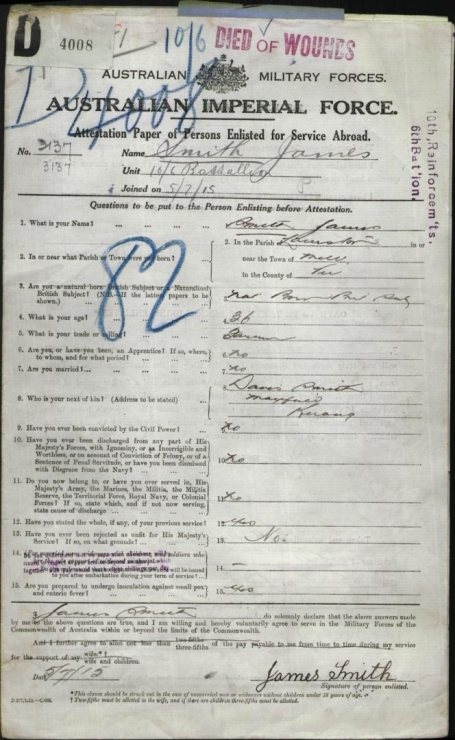 D 4008 10/6 DIED OF WOUNDS
D4008
AUSTRALIAN MILITARY FORCES.
AUSTRALIAN IMPERIAL FORCE.
Attestation Paper of Persons Enlisted for Service Abroad.
No. 3137 Name Smith James
3137 Unit 10/6 Battalion
Joined on 5/7/15
10th. Reinforcem'ts,
6th Bat'ion.
Questions to be put to the Person Enlisting before Attestation.
1. What is your Name? ... 1. Smith James
2. In or near what Parish or Town were you born? ... 2. In the Parish in or
near the Town of
in the County of Vic
82
3. Are you a natural born British Subject or a Naturalized
British Subject? (N.B.—If the latter, papers to be
shown.) 3. Nat Born
4. What is your age? ... 4. 36
5. What is your trade or calling? ... 5.
6. Are you, or have you been, an Apprentice? If so, where,
to whom, and for what period? 6. No
7. Are you married? ... 7. No
8. Who is your next of kin? (Address to be stated) 8. Smith
Kerang
9. Have you ever been convicted by the Civil Power? 9. No
10. Have you ever been discharged from any part of His
Majesty's Forces, with Ignominy, or as Incorrigible and
Worthless, or on account of Conviction of Felony, or of a
Sentence of Penal Servitude, or have you been dismissed
with Disgrace from the Navy? 10. No
11. Do you now belong to, or have you ever served in, His
Majesty's Army, the Marines, the Militia, the Militia
Reserve, the Territorial Force, Royal Navy, or Colonial
Forces? If so, state which, and if not now serving,
state cause of discharge 11. No
12. Have you stated the whole, if any, of your previous service? 12. Yes
13. Have you ever been rejected as unfit for His Majesty's
Service? If so, on what grounds? 13. No.
14. —
to you after embarkation during your term of service?
15. Are you prepared to undergo inoculation against small pox
and enteric fever? 15. Yes
I, James Smith do solemnly declare that the above answers made
by me to the above questions are true, and I am willing and hereby voluntarily agree to serve in the Military Forces of the
Commonwealth of Australia within or beyond the limits of the Commonwealth.
And I further agree to allot not less than two-fifths three-fifths of the pay payable to me from time to time during my service
for the support of my wife.* wife and children.
Date 5/7/15 James Smith
Signature of person enlisted.
*This clause should be struck out in the case of unmarried men or widowers without children under 18 years of age.
† Two-fifths must be allotted to the wife, and if there are children three-fifths must be allotted.